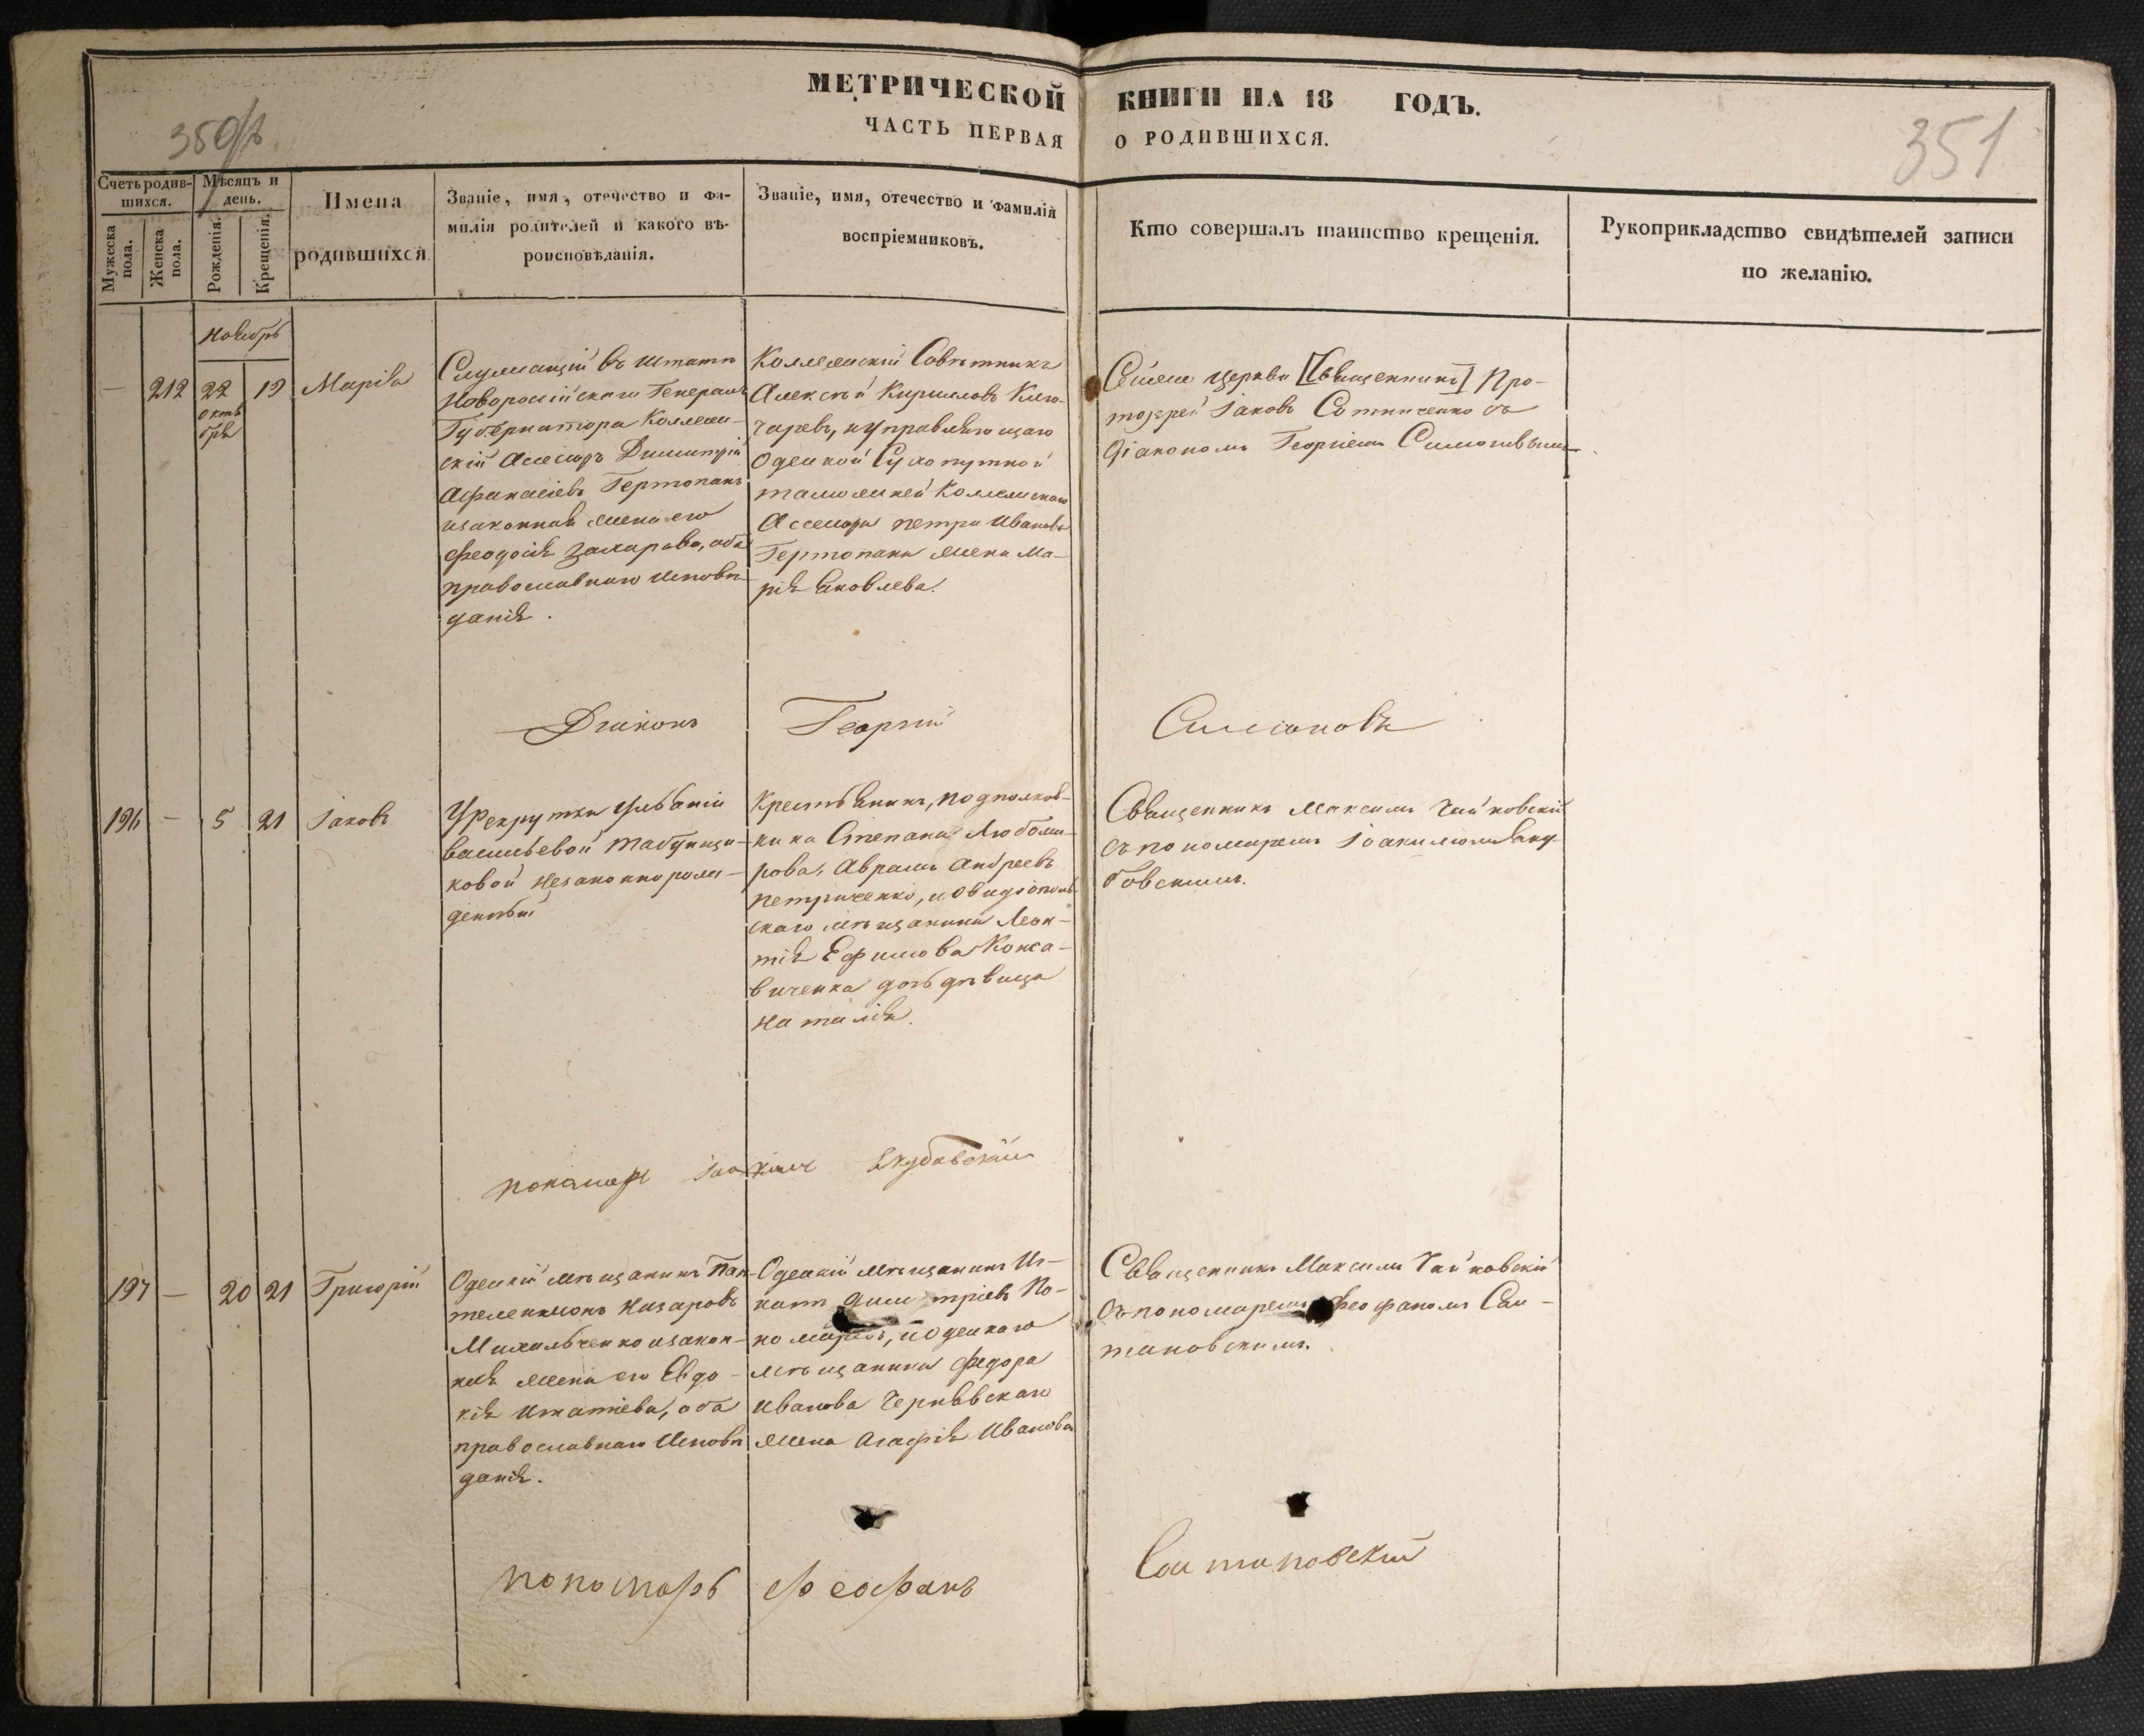 МЕТРИЧЕСКОЙ КНИГИ НА 18 ГОДЪ.
ЧАСТЬ ПЕРВАЯ О РОДИВШИХСЯ.
351
Счетъ родив-
шихся.
Мужеска пола.
Женска пола.
Мѣсяцъ и
день.
Рожденія.
Крещенія.
Имена
родившихся
Званіе, имя, отечество и фа-
милія родителей и какого вѣ-
роисповѣданія.
Званіе, имя, отечество и фамилія
воспріемниковъ.
Кто совершалъ таинство крещенія.
Рукоприкладство свидѣтелей записи
по желанію.
Ноябрь
— 212 22 19 Марія
Октя
бря
Служащій въ штатѣ
Новоросійскаго Генералъ
Губернатора Коллеж-
скій Асесоръ Димитрій
Афанасіевъ Гертопанъ
изаконная жена его
Феодосія Захарова, оба
православнаго исповѣ-
данія.
Коллежскій Совѣтникъ
Алексѣй Кириловъ Клю-
чаревъ, иуправляющаго
Одеской Сухопутной
таможней Коллежскаго
Ассесора Петра Иванова
Гертопана жена Ма-
рія Яковлева.
Сейже церкви [Священникъ] Про-
тоіерей Іаковъ Сотниченко съ
Діакономъ Георгіемъ
Діаконъ Георгій
196 — 5 21 Іаковъ
У рекрутки Ульяніи
Васильевой
ковой незаконнорож-
денный
Крестьянинъ, подполков-
ника Степана Любоми-
рова, Аврамъ Андреевъ
Петриченко, иОвидіополь
скаго мѣщанина Леон-
тія Ефимова Конса-
виченка дочь дѣвица
Наталія.
Священникъ Максимъ Чайковскій
съпономаремъ Іоакимомъ Яку-
бовскимъ.
пономарь Іоакимъ Якубовский
197 — 20 21 Григорій
Одескій мѣщанинъ Пан-
телеимонъ Назаровъ
Михальченко изакон-
ная жена его Евдо-
кія Игнатіева, оба
православнаго Исповѣ
данія.
Одескій мѣщанинъ Иг-
натъ Димитріевъ По-
номаревъ, иодескаго
мѣщанина Федора
Иванова Чернявскаго
жена Агафія Иванова
Священникъ Максимъ Чайковскій
съпономаремъ Феофаномъ Сан-
тановскимъ.
пономарь Феофанъ